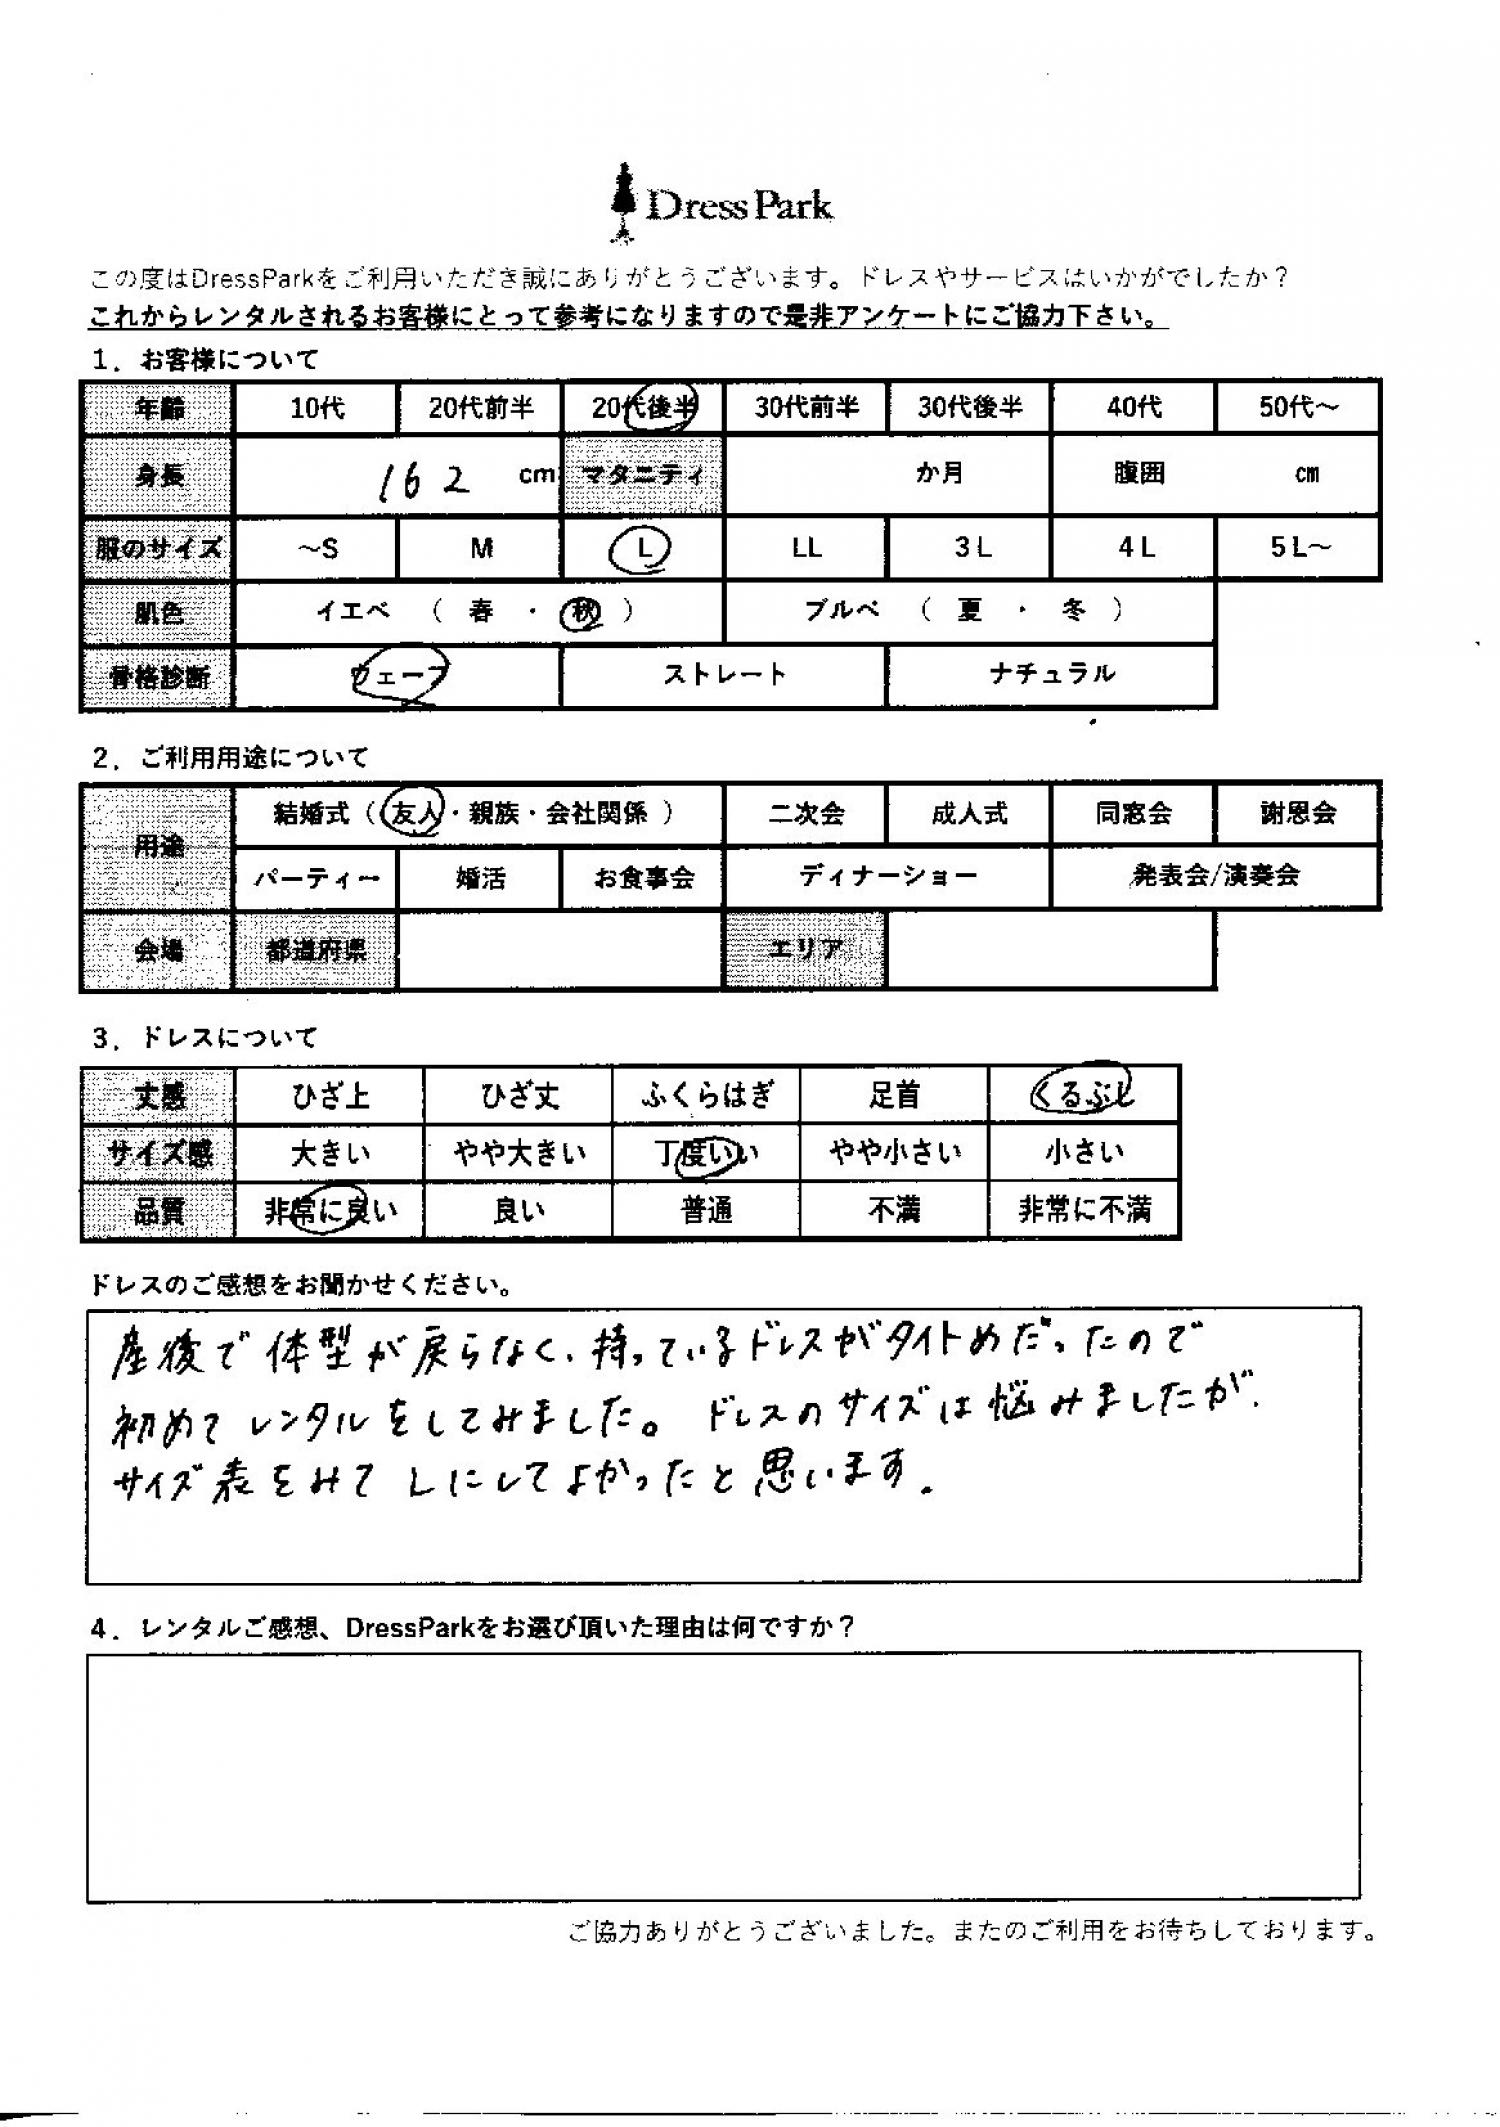 Dress Park
この度はDressParkをご利用いただき誠にありがとうございます。ドレスやサービスはいかがでしたか？
これからレンタルされるお客様にとって参考になりますので是非アンケートにご協力下さい。
1．お客様について
年齢 10代 20代前半 20代後半 30代前半 30代後半 40代 50代～
身長 162 cm マタニティ か月 腹囲 cm
服のサイズ ～S M L LL 3L 4L 5L～
肌色 イエベ （ 春 ・ 秋 ） ブルベ （ 夏 ・ 冬 ）
骨格診断 ウェーブ ストレート ナチュラル
2．ご利用用途について
用途 結婚式（ 友人・親族・会社関係 ） 二次会 成人式 同窓会 謝恩会
パーティー 婚活 お食事会 ディナーショー 発表会/演奏会
会場 都道府県 エリア
3．ドレスについて
丈感 ひざ上 ひざ丈 ふくらはぎ 足首 くるぶし
サイズ感 大きい やや大きい 丁度いい やや小さい 小さい
品質 非常に良い 良い 普通 不満 非常に不満
ドレスのご感想をお聞かせください。
産後で体型が戻らなく、持っているドレスがタイトめだったので
初めてレンタルをしてみました。ドレスのサイズは悩みましたが、
サイズ表をみてLにしてよかったと思います。
4．レンタルご感想、DressParkをお選び頂いた理由は何ですか？
ご協力ありがとうございました。またのご利用をお待ちしております。